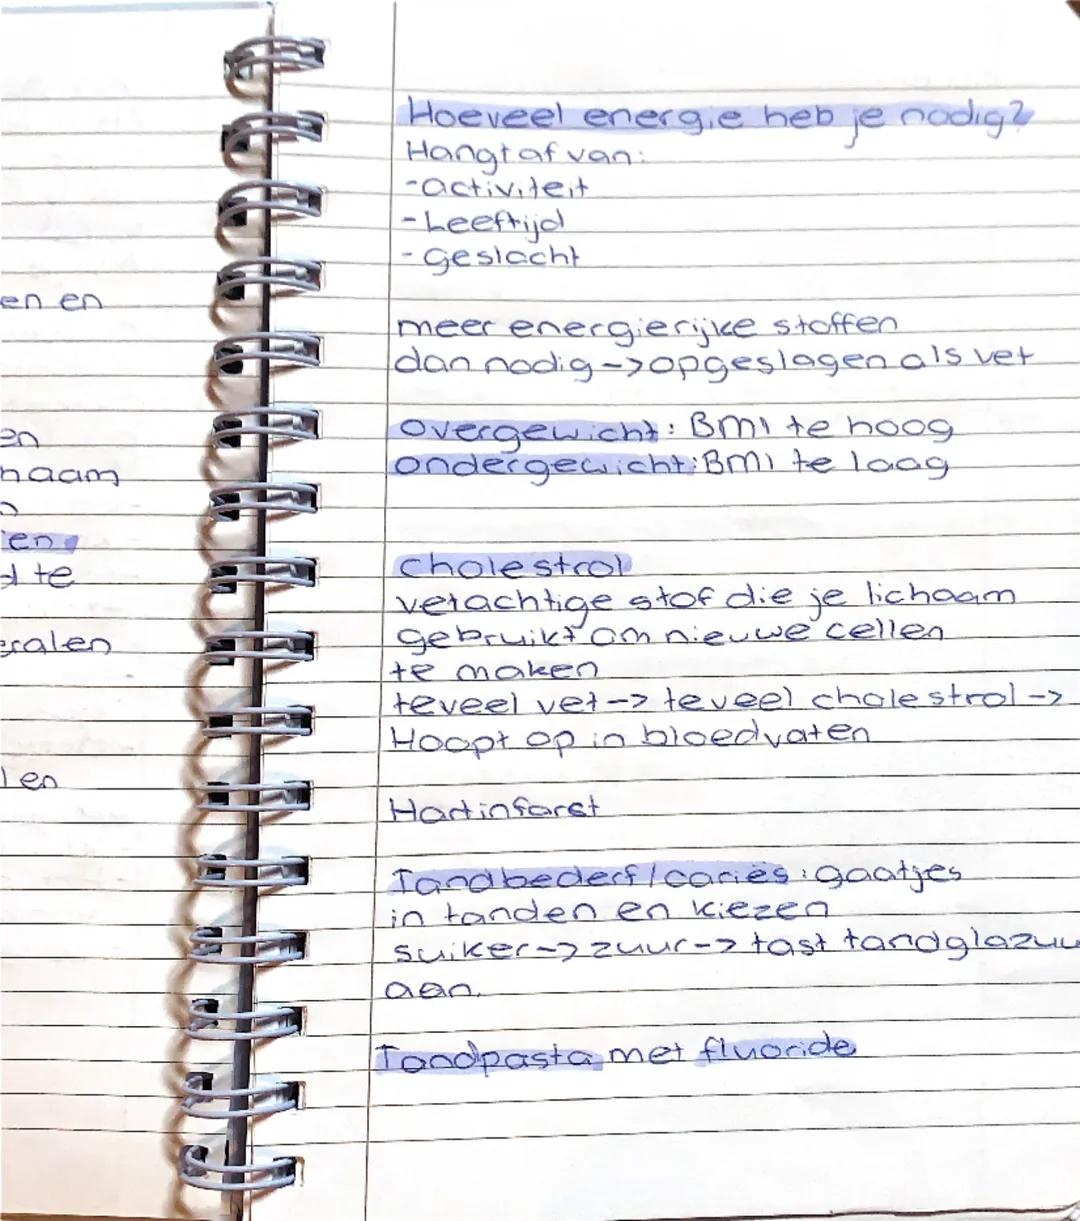 en en
en
haam
en
d te
ralen
len
Hoeveel energie heb je nodig?
Hangt af van:
-activiteit
-Leeftijd
-geslacht
meer energierijke stoffen
dan nodig -> opgeslagen als vet
overgewicht: BMI te hoog
ondergewicht: BMI te laag
cholestrol
vetachtige stof die je lichaam
gebruikt om nieuwe cellen
te maken
teveel vet -> teveel cholestrol ->
Hoopt op in bloedvaten
Hartinfarst
Tandbederf/cariës: gaatjes
in tanden en kiezen
suiker -> zuur -> tast tandglazuu
aan.
Tandpasta met fluoride